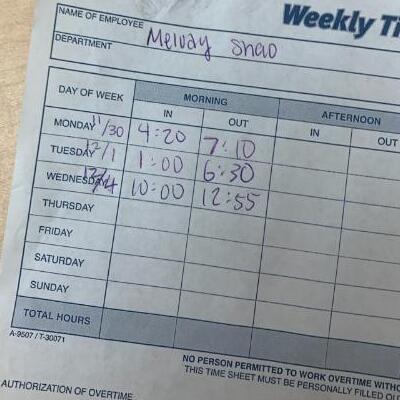 Weekly Ti
NAME OF EMPLOYEE Melody Shao
DEPARTMENT
DAY OF WEEK MORNING AFTERNOON
IN OUT IN OUT
MONDAY 11/30 4:20 7:10
TUESDAY 12/1 1:00 6:30
WEDNESDAY 10:00 12:55
THURSDAY
FRIDAY
SATURDAY
SUNDAY
TOTAL HOURS
A-9507 / T-30071
NO PERSON PERMITTED TO WORK OVERTIME WITHO
THIS TIME SHEET MUST BE PERSONALLY FILLED OU
AUTHORIZATION OF OVERTIME